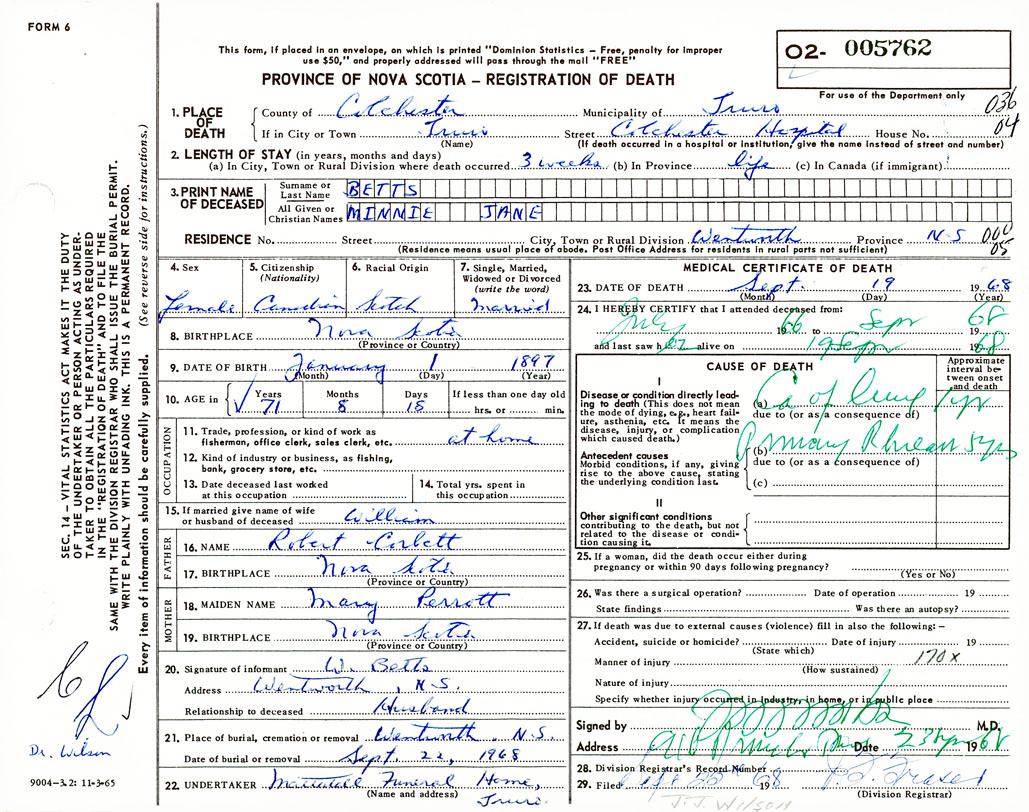 FORM 6
This form, if placed in an envelope, on which is printed "Dominion Statistics – Free, penalty for improper
use $50," and properly addressed will pass through the mail "FREE"
PROVINCE OF NOVA SCOTIA – REGISTRATION OF DEATH
02- 005762
For use of the Department only
036
04
1. PLACE OF DEATH
County of Colchester Municipality of Truro
If in City or Town Truro Street Colchester Hospital House No.
(Name) (If death occurred in a hospital or institution, give the name instead of street and number)
2. LENGTH OF STAY (in years, months and days)
(a) In City, Town or Rural Division where death occurred 3 weeks (b) In Province life (c) In Canada (if immigrant)
3. PRINT NAME OF DECEASED
Surname or Last Name BETTS
All Given or Christian Names MINNIE JANE
RESIDENCE No. Street City, Town or Rural Division Wentworth Province N-S
000
05
(Residence means usual place of abode. Post Office Address for residents in rural parts not sufficient)
4. Sex
Female
5. Citizenship
(Nationality)
Canadian
6. Racial Origin
Scotch
7. Single, Married,
Widowed or Divorced
(write the word)
married
8. BIRTHPLACE Nova Scotia
(Province or Country)
9. DATE OF BIRTH January 1 1897
(Month) (Day) (Year)
10. AGE in
Years Months Days If less than one day old
71 8 18 hrs. or min.
OCCUPATION
11. Trade, profession, or kind of work as
fisherman, office clerk, sales clerk, etc. at home
12. Kind of industry or business, as fishing,
bank, grocery store, etc.
13. Date deceased last worked
at this occupation
14. Total yrs. spent in
this occupation
15. If married give name of wife
or husband of deceased William
FATHER
16. NAME Robert Corbett
17. BIRTHPLACE Nova Scotia
(Province or Country)
MOTHER
18. MAIDEN NAME Mary Perrott
19. BIRTHPLACE Nova Scotia
(Province or Country)
20. Signature of informant W. Betts
Address Wentworth, N.S.
Relationship to deceased Husband
21. Place of burial, cremation or removal Wentworth, N.S.
Date of burial or removal Sept. 22, 1968
22. UNDERTAKER Funeral Home,
(Name and address) Truro.
MEDICAL CERTIFICATE OF DEATH
23. DATE OF DEATH Sept. 19 1968
(Month) (Day) (Year)
24. I HEREBY CERTIFY that I attended deceased from:
July 1966 to Sept 1968
and last saw her alive on 19 Sept 1968
CAUSE OF DEATH
Approximate
interval be-
tween onset
and death
I
Disease or condition directly lead-
ing to death (This does not mean
the mode of dying, e.g., heart fail-
ure, asthenia, etc. It means the
disease, injury, or complication
which caused death.)
(a) Ca of lung 1 yr
due to (or as a consequence of)
Antecedent causes
Morbid conditions, if any, giving
rise to the above cause, stating
the underlying condition last.
(b) Primary R breast yrs
due to (or as a consequence of)
(c)
II
Other significant conditions
contributing to the death, but not
related to the disease or condi-
tion causing it.
25. If a woman, did the death occur either during
pregnancy or within 90 days following pregnancy?
(Yes or No)
26. Was there a surgical operation? Date of operation 19
State findings Was there an autopsy?
27. If death was due to external causes (violence) fill in also the following: –
Accident, suicide or homicide? Date of injury 19
(State which)
Manner of injury 170 X
(How sustained)
Nature of injury
Specify whether injury occurred in industry, in home, or in public place
Signed by M.D.
Address Date 23 1968
28. Division Registrar's Record Number
29. Filed 1968
(Division Registrar)
T.J. WILSON
SEC. 14 – VITAL STATISTICS ACT MAKES IT THE DUTY
OF THE UNDERTAKER OR PERSON ACTING AS UNDER-
TAKER TO OBTAIN ALL THE PARTICULARS REQUIRED
IN THE "REGISTRATION OF DEATH" AND TO FILE THE
SAME WITH THE DIVISION REGISTRAR WHO SHALL ISSUE THE BURIAL PERMIT.
WRITE PLAINLY WITH UNFADING INK. THIS IS A PERMANENT RECORD.
Every item of information should be carefully supplied. (See reverse side for instructions.)
Dr. Wilson
9004-3.2: 11-3-65